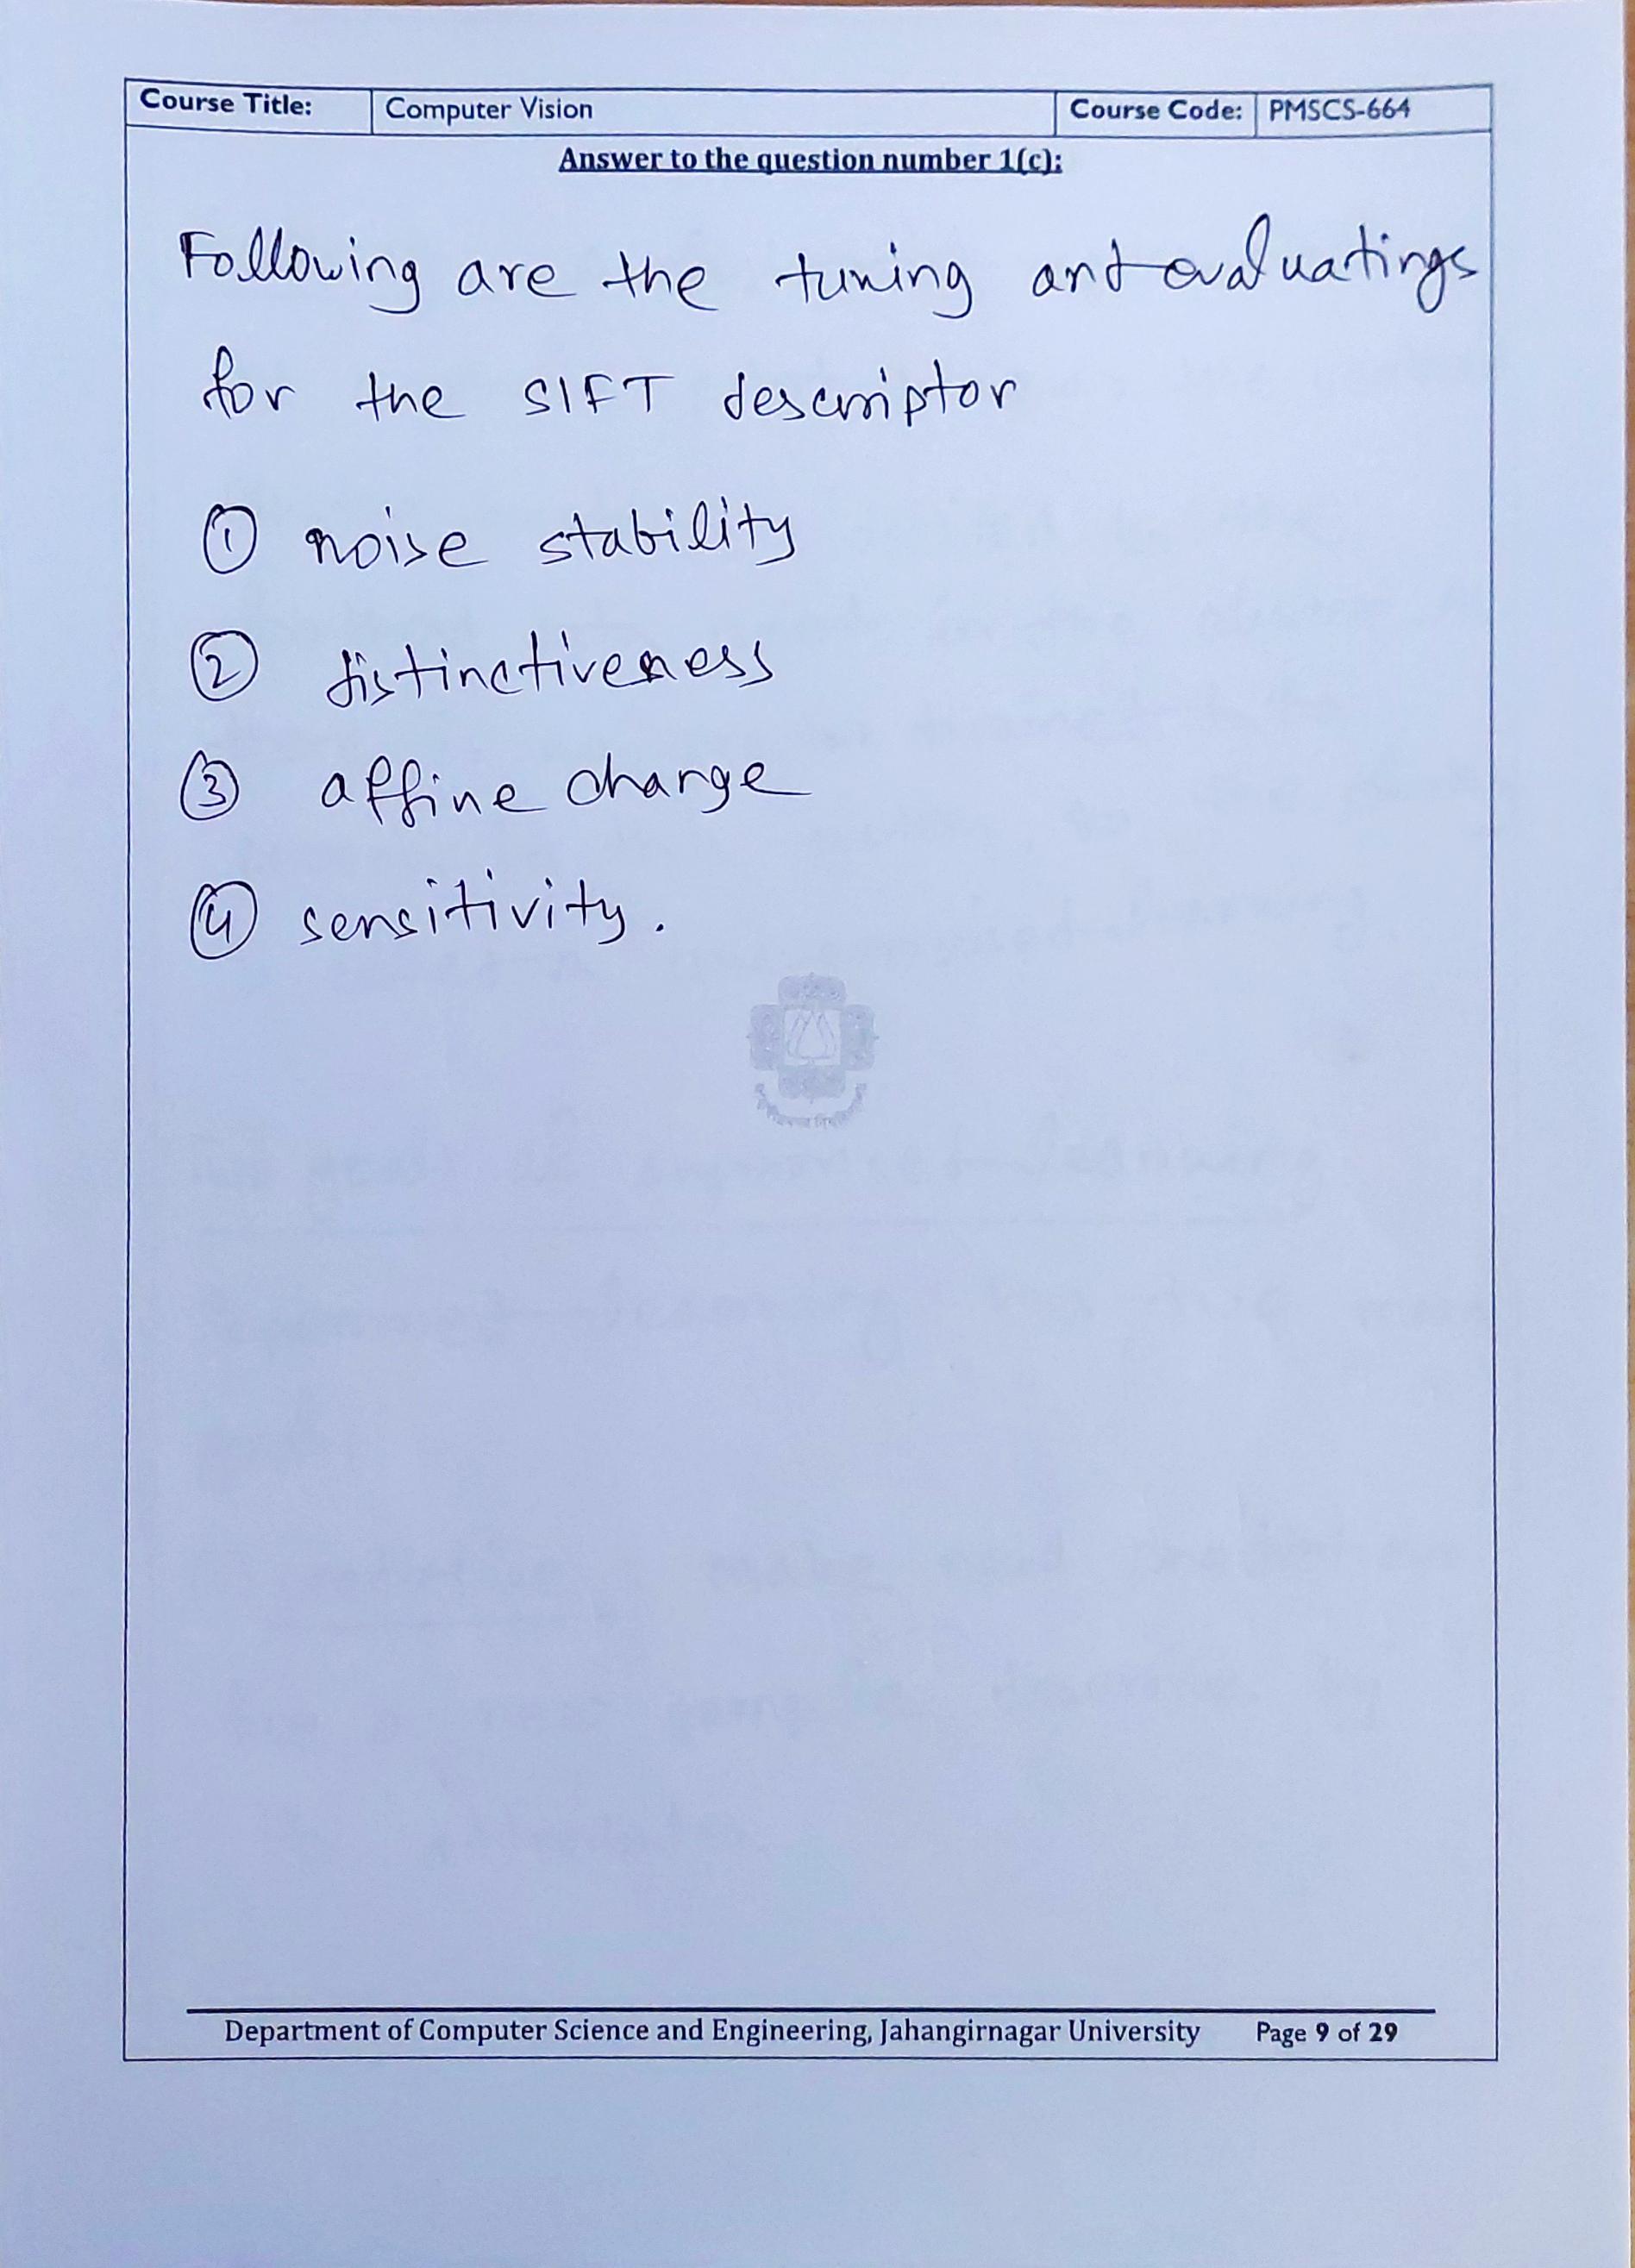 Course Title: Computer Vision Course Code: PMSCS-664
Answer to the question number 1(c):
Following are the tuning and evaluatings
for the SIFT descriptor
① noise stability
② distinctiveness
③ affine change
④ sensitivity.
Department of Computer Science and Engineering, Jahangirnagar University Page 9 of 29